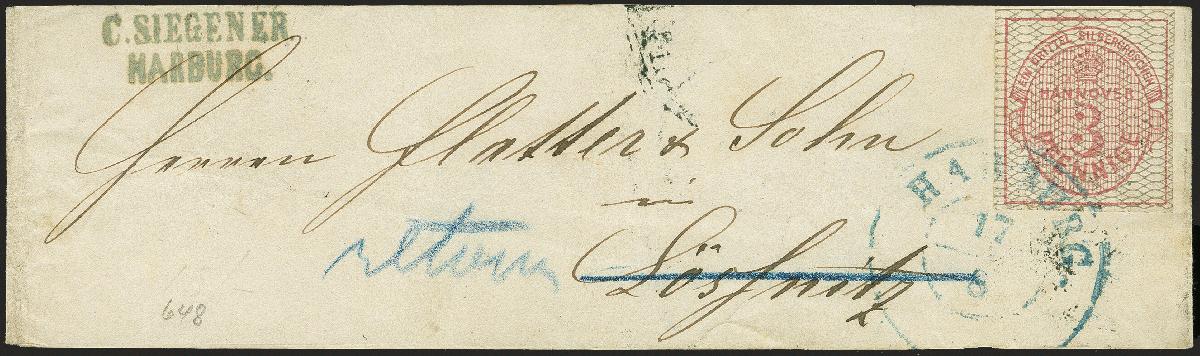 C. SIEGENER
HARBURG.
EIN DRITTEL SILBERGROSCHEN
HANNOVER
3
PFENNIGE
Herren Flatter & Sohn
in
Lößnitz
retour
HARBURG
17
8
648